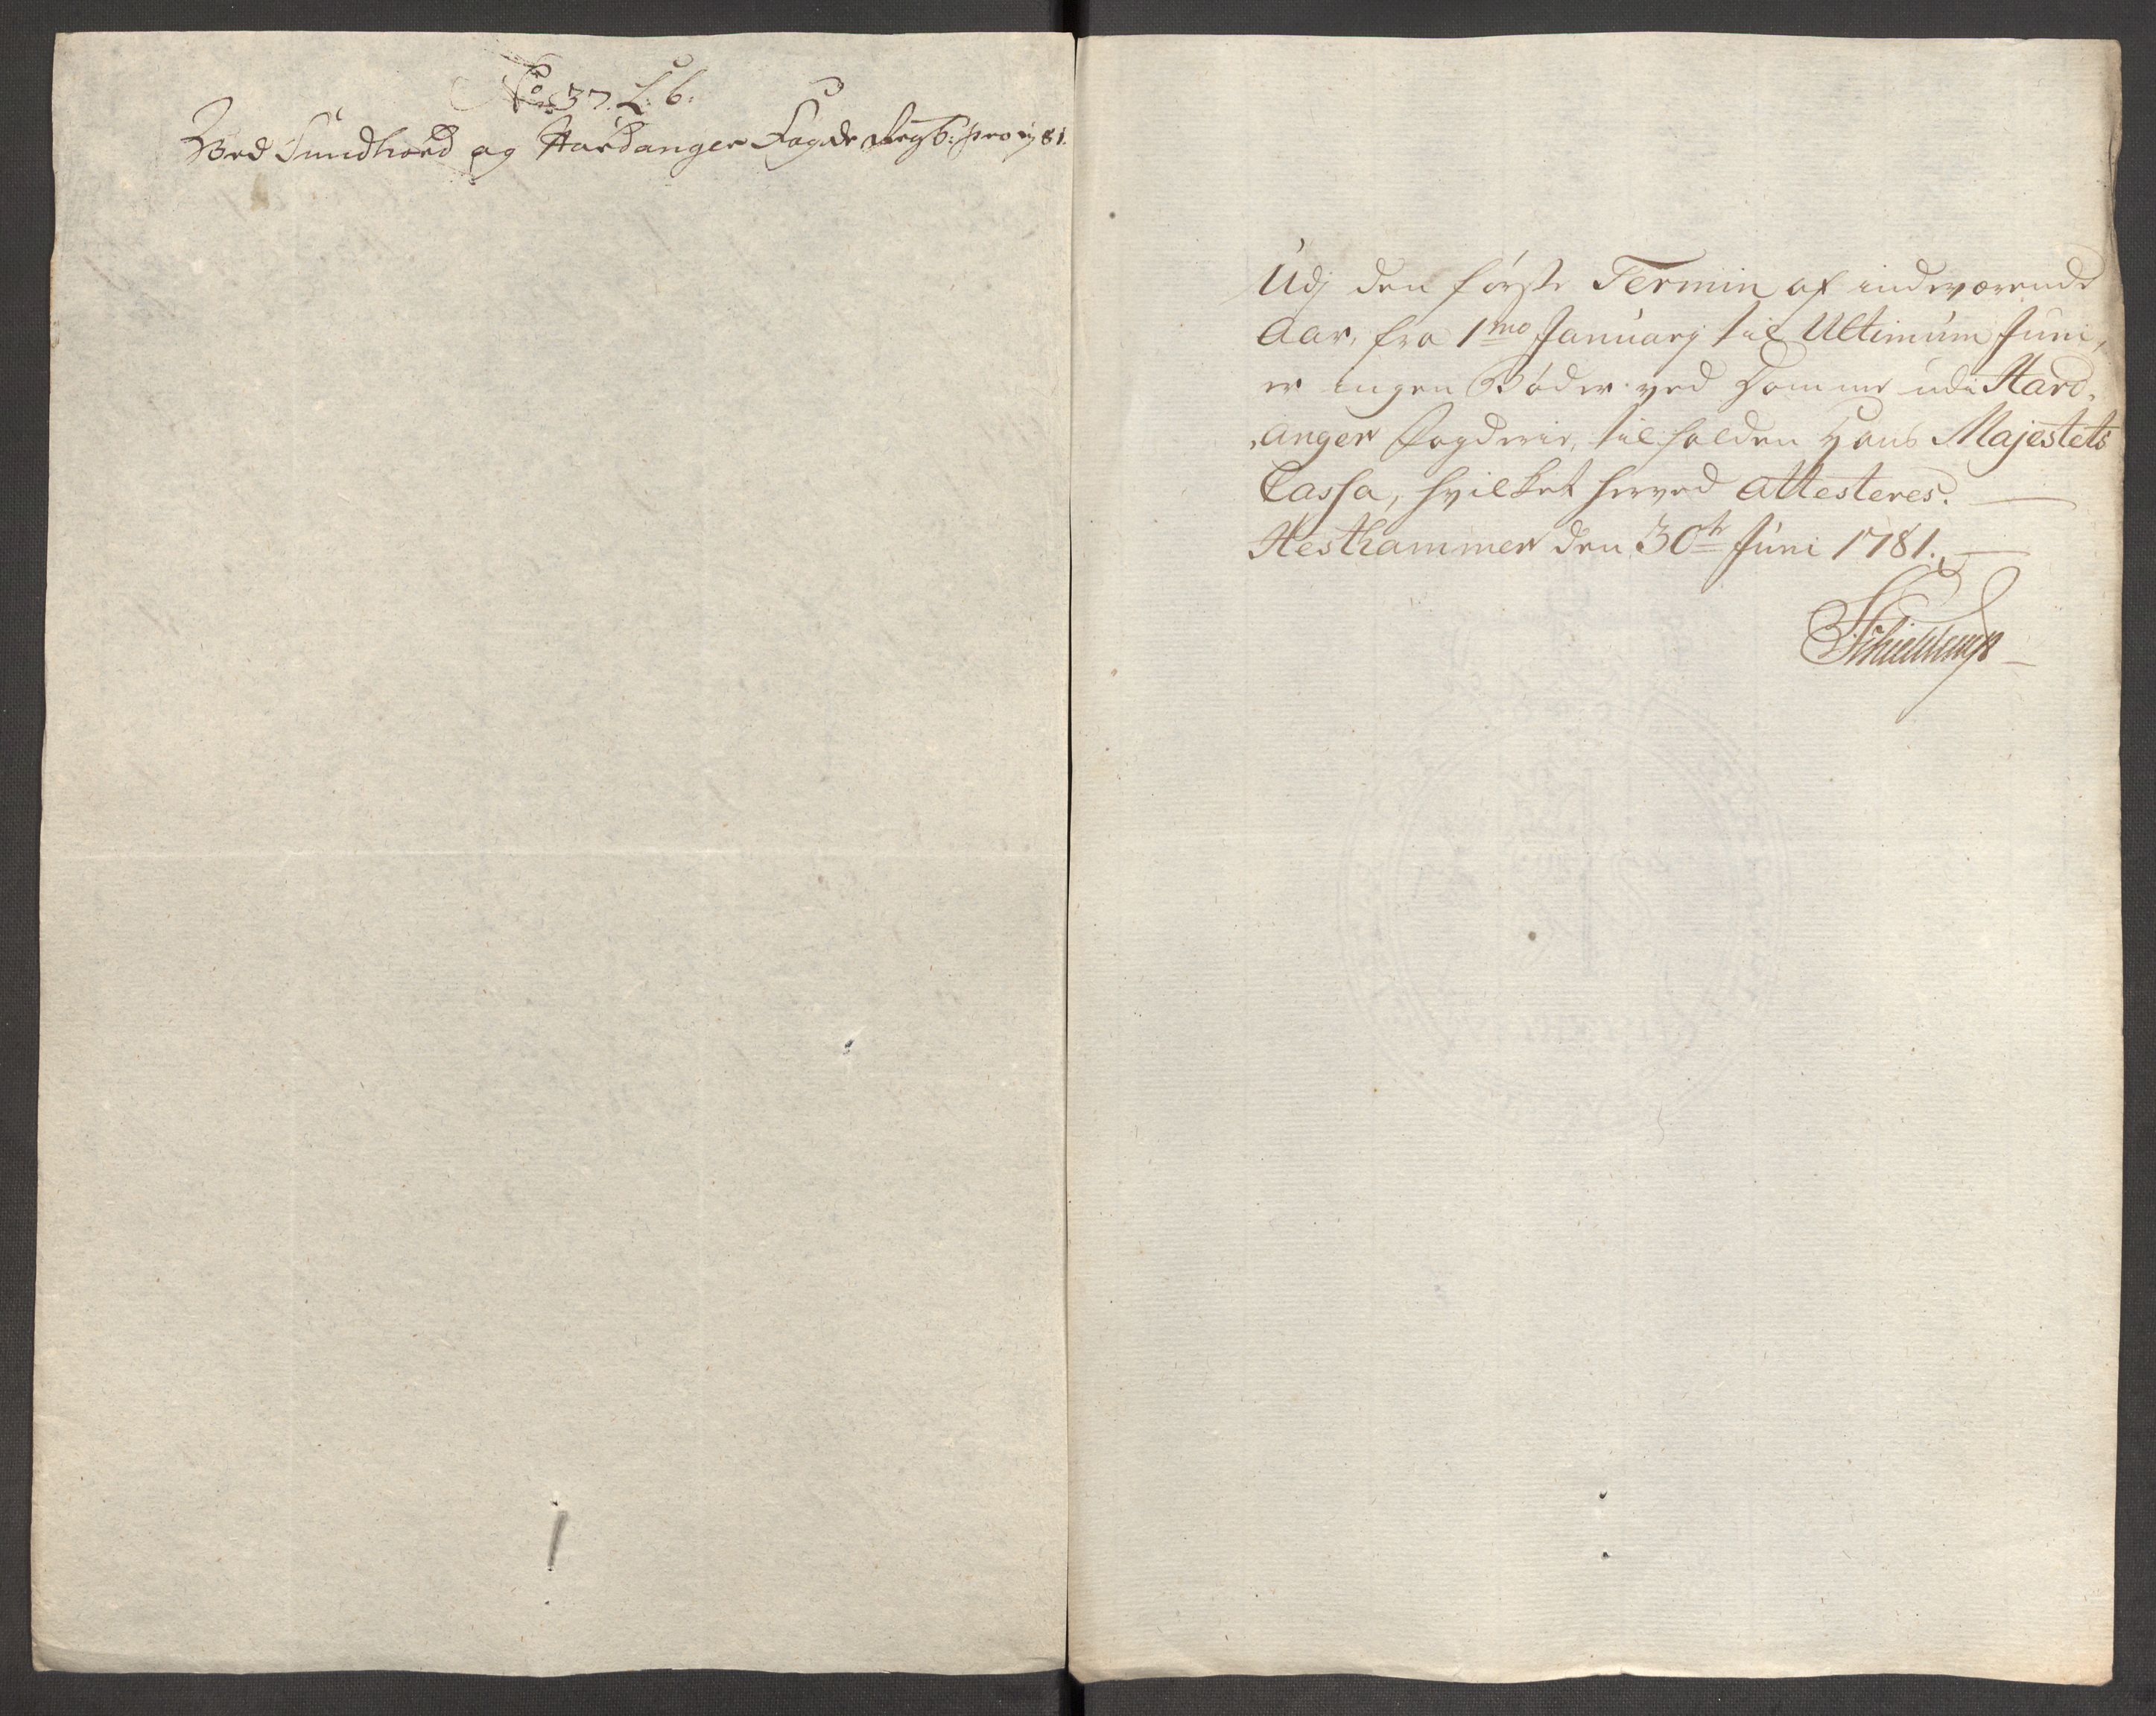 No 37. L: b:
Ved Sundhord og Hardanger Fogde Regb: pro 1781.
Udj den første Termin af indeværende
Aar, fra 1mo Januarj til Ultimum Juni,
er ingen Bøder ved Domme udi Hard,
,anger Fogderie, tilfalden Hans Majestets
Cassa, hvilket herved attesteres. —
Hesthammer den 30te Juni 1781. —